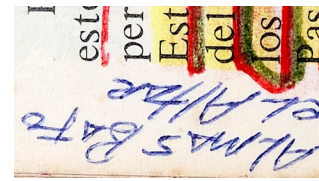 esto
per
Est
del
los
Pas
ALMAS BAJO
EL ALTAR